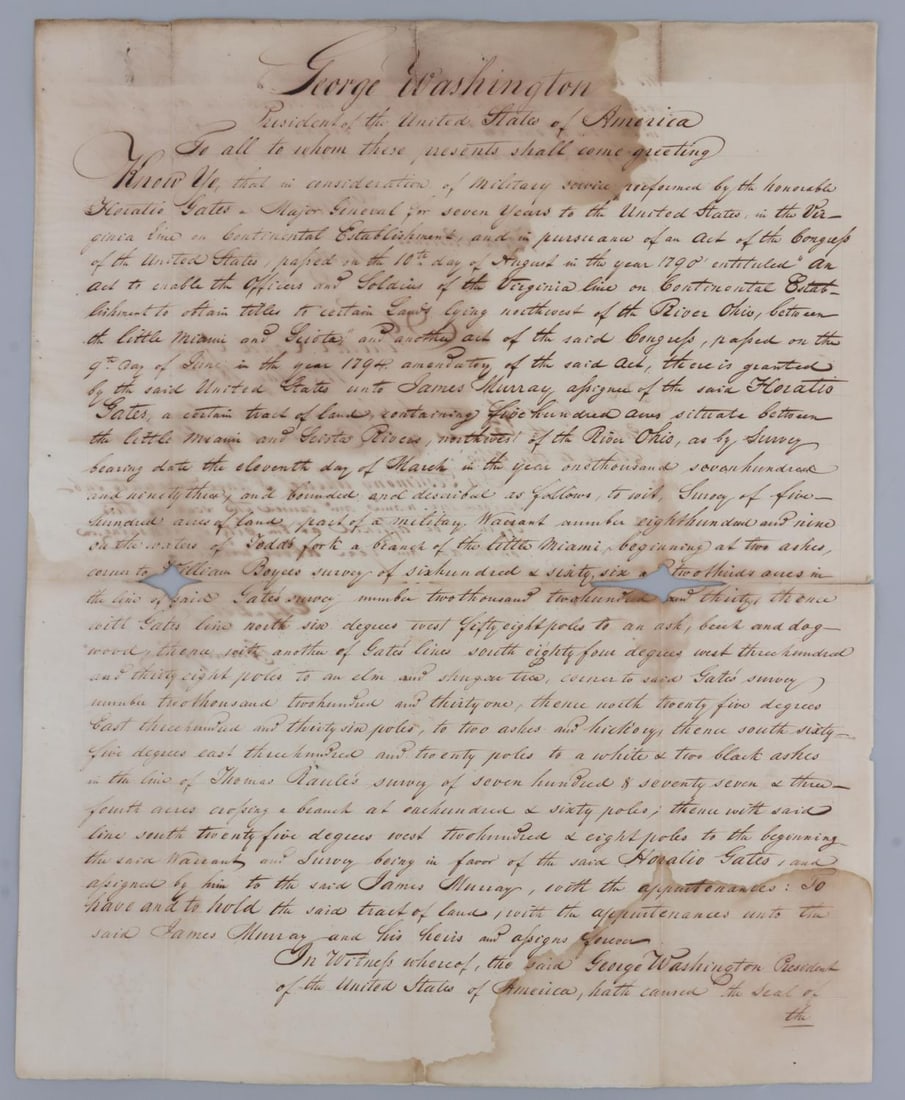 George Washington
President of the United States of America
To all to whom these presents shall come greeting
Know Ye, that in consideration of military service preformed by the honorable
Horatio Gates a Major General for seven Years to the United States, in the Vir-
ginia line on Continental Establishment, and in pursuance of an Act of the Congress
of the United States, passed on the 10th day of August in the year 1790 entituled "An
Act to enable the Officers and Soldiers of the Virginia line on Continental Estab-
lishment to obtain titles to certain Lands lying northwest of the River Ohio, between
the little Miami and Sciota," and another act of the said Congress, passed on the
9th day of June in the year 1794 amendatory of the said Act, there is granted
by the said United States unto James Murray, assignee of the said Horatio
Gates, a certain tract of land, containing five hundred acres situate between
the little Miami and Sciota Rivers, northwest of the River Ohio, as by Survey
bearing date the eleventh day of March in the year onethousand sevenhundred
and ninety three, and bounded and described as follows, to wit, Survey of five-
hundred acres of land, part of a military Warrant number eighthundred and nine
on the waters of Todds fork a branch of the little Miami, beginning at two ashes,
corner to William Boyces survey of sixhundred & sixty six a twothirds acres in
the line of said Gates survey number twothousand twohundred and thirty, thence
with Gates line north six degrees west fifty eight poles to an ash, beech and dog-
wood, thence with another of Gates lines south eighty four degrees west threehundred
and thirty eight poles to an elm and shugar tree, corner to said Gate's survey
number twothousand twohundred and thirty one, thence north twenty five degrees
East threehundred and thirty six poles, to two ashes and hickory, thence south sixty-
five degrees east threehundred and twenty poles to a white & two black ashes
in the line of Thomas survey of seven hundred & seventy seven & three-
fourth acres crossing a branch at onehundred & sixty poles; thence with said
line south twenty five degrees west twohundred & eight poles to the beginning
the said Warrant and Survey being in favor of the said Horatio Gates, and
assigned by him to the said James Murray, with the appurtenances: To
have and to hold the said tract of land, with the appurtenances unto the
said James Murray and his heirs and assigns forever
In Witness whereof, the said George Washington President
of the United States of America, hath caused the Seal of
the